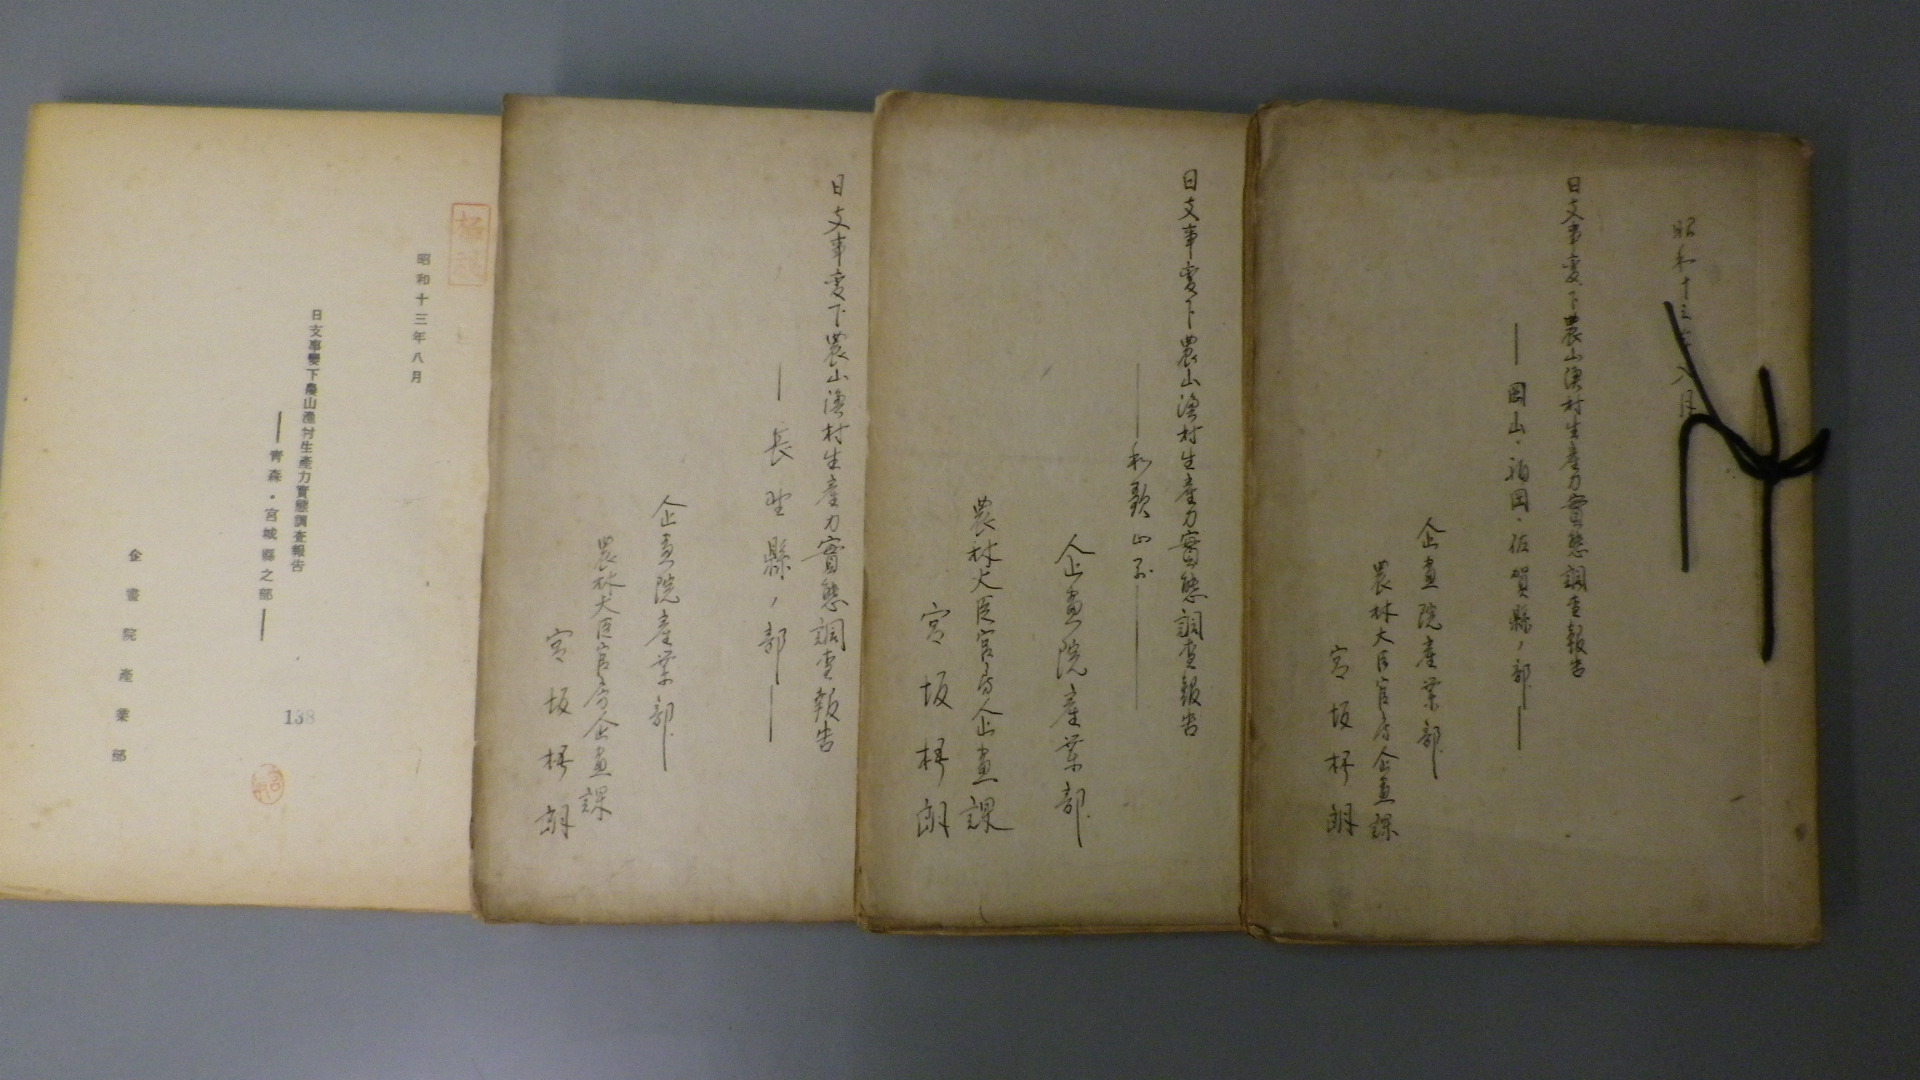 昭和十三年八月
日支事変下農山漁村生産力實態調査報告
――岡山・福岡・佐賀縣ノ部――
企画院産業部
農林大臣官房企画課
宮坂梧朗
日支事変下農山漁村生産力實態調査報告
――和歌山縣――
企画院産業部
農林大臣官房企画課
宮坂梧朗
日支事変下農山漁村生産力實態調査報告
――長野縣ノ部――
企画院産業部
農林大臣官房企画課
宮坂梧朗
極秘
昭和十三年八月
日支事變下農山漁村生產力實態調査報告
――靑森・宮城縣之部――
138
企畫院產業部